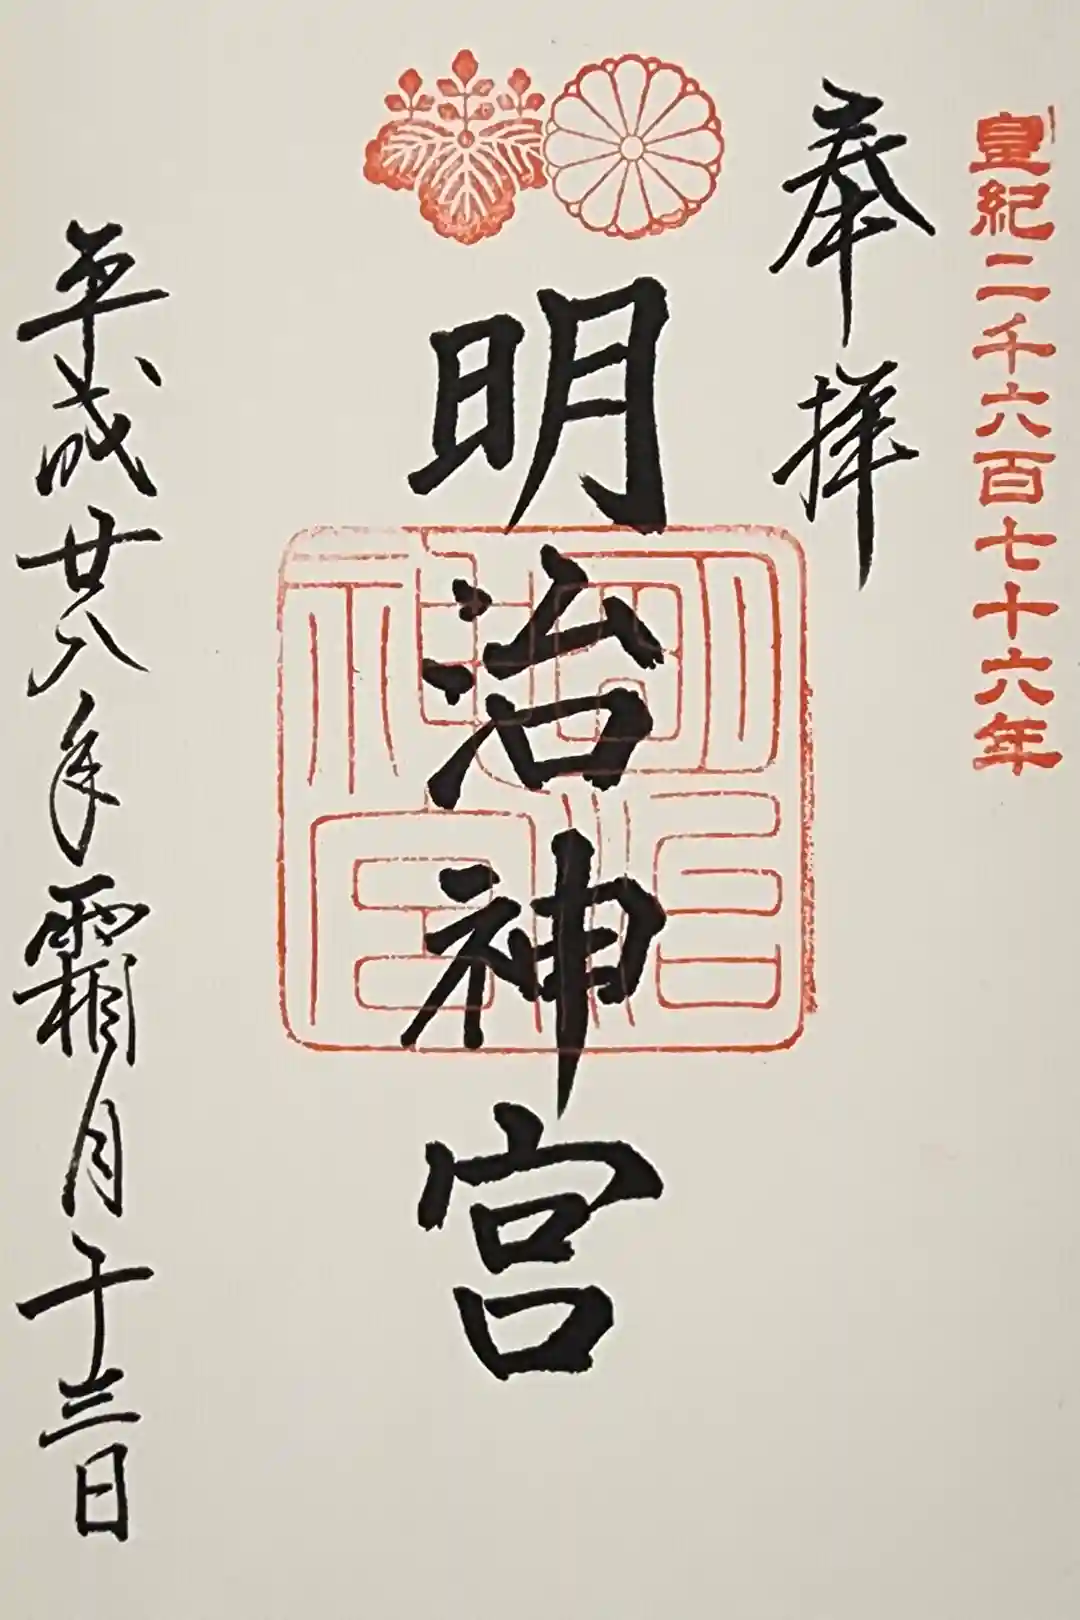 皇紀二千六百七十六年
奉拝
明治神宮
明治神宮
平成廿八年霜月十三日